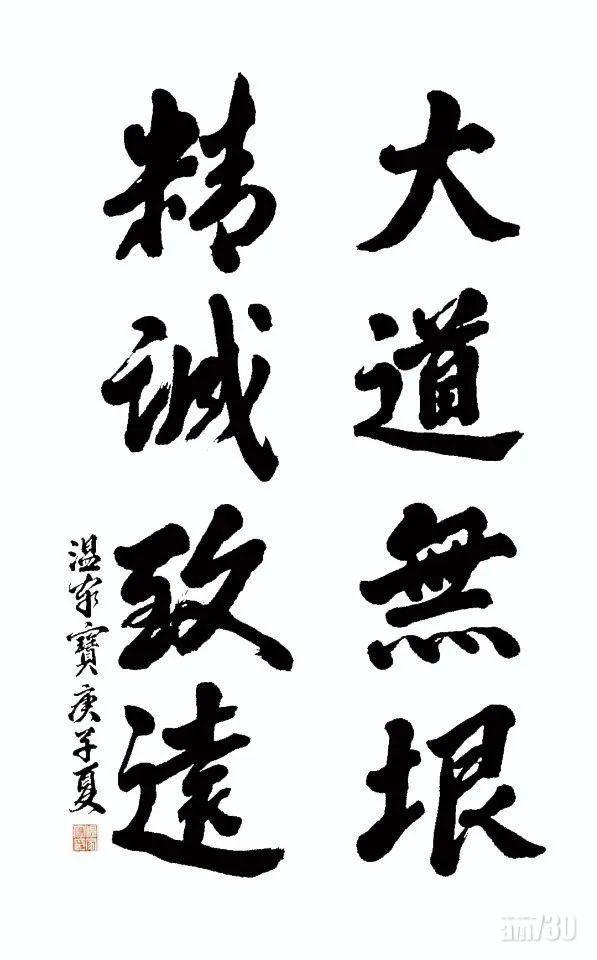 大道無垠
精誠致遠
温家寶庚子夏
am730